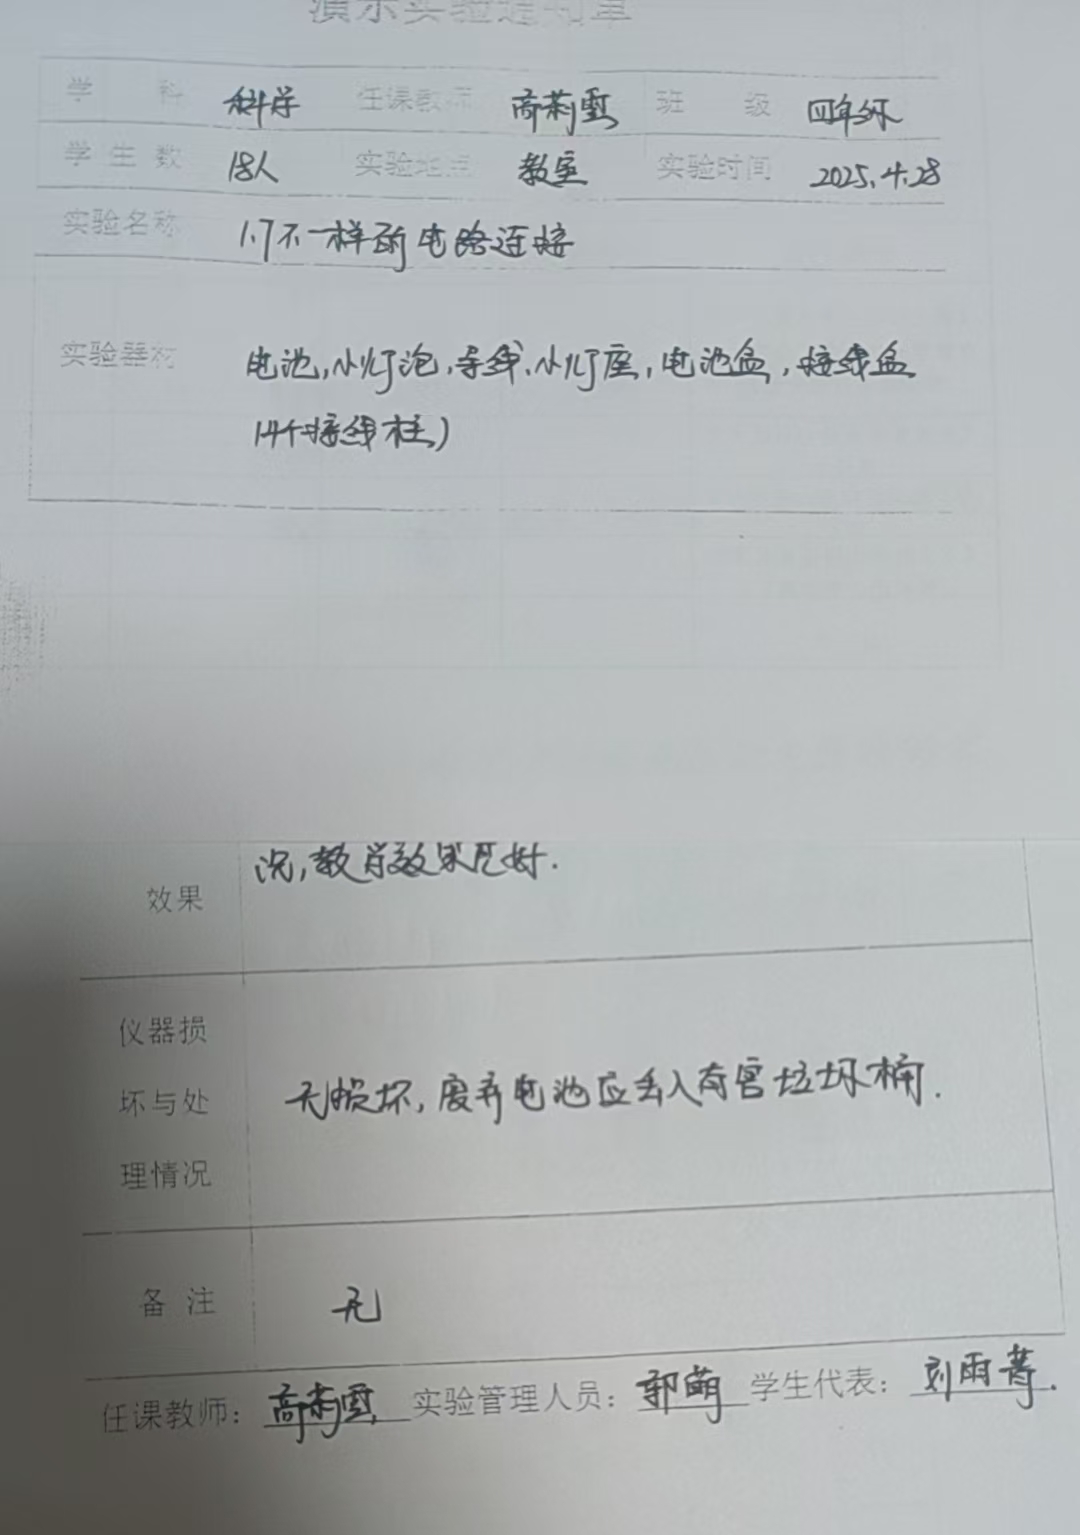 演示实验通知单
学 科 科学 任课教师 高莉雲 班 级 四年级
学生数 18人 实验地点 教室 实验时间 2025.4.28
实验名称 1.7不一样的电路连接
实验器材 电池,小灯泡,导线,小灯座,电池盒,接线盒
(4个接线柱)
况,教学效果良好.
效果
仪器损
坏与处 无损坏,废弃电池应丢入有害垃圾桶.
理情况
备 注 无
任课教师: 高莉雲 实验管理人员: 郭萌 学生代表: 刘雨菁.